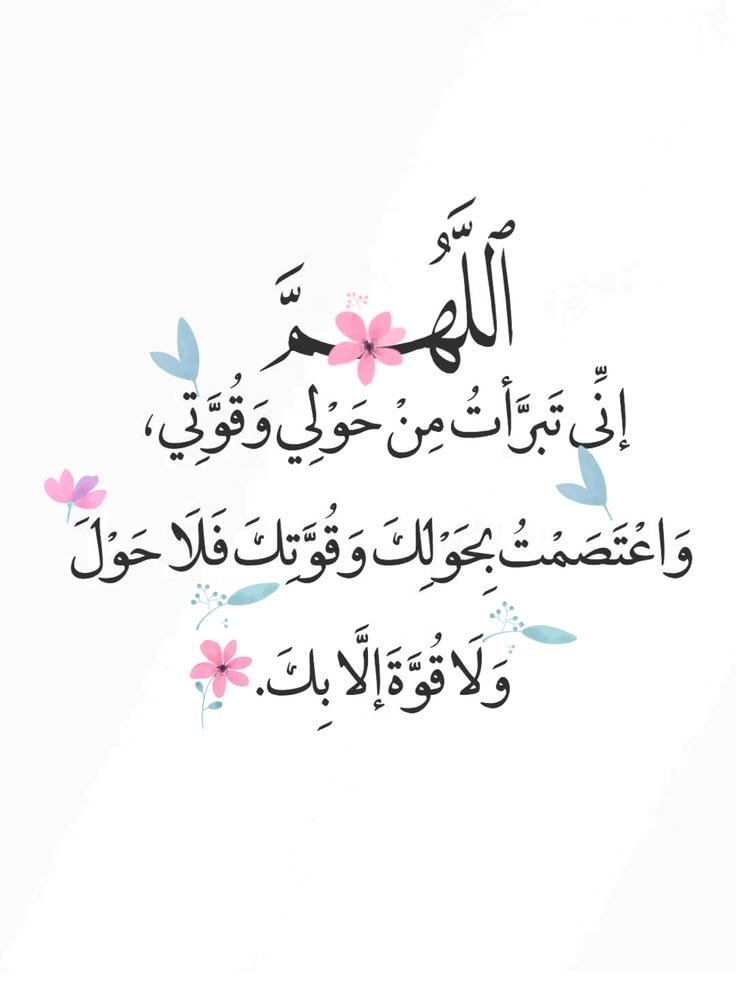 ٱللَّهُمَّ
إنِّي تَبَرَّأتُ مِنْ حَوْلِي وَقُوَّتِي،
وَاعْتَصَمْتُ بِحَوْلِكَ وَقُوَّتِكَ فَلَا حَوْلَ
وَلَا قُوَّةَ إلَّا بِكَ.